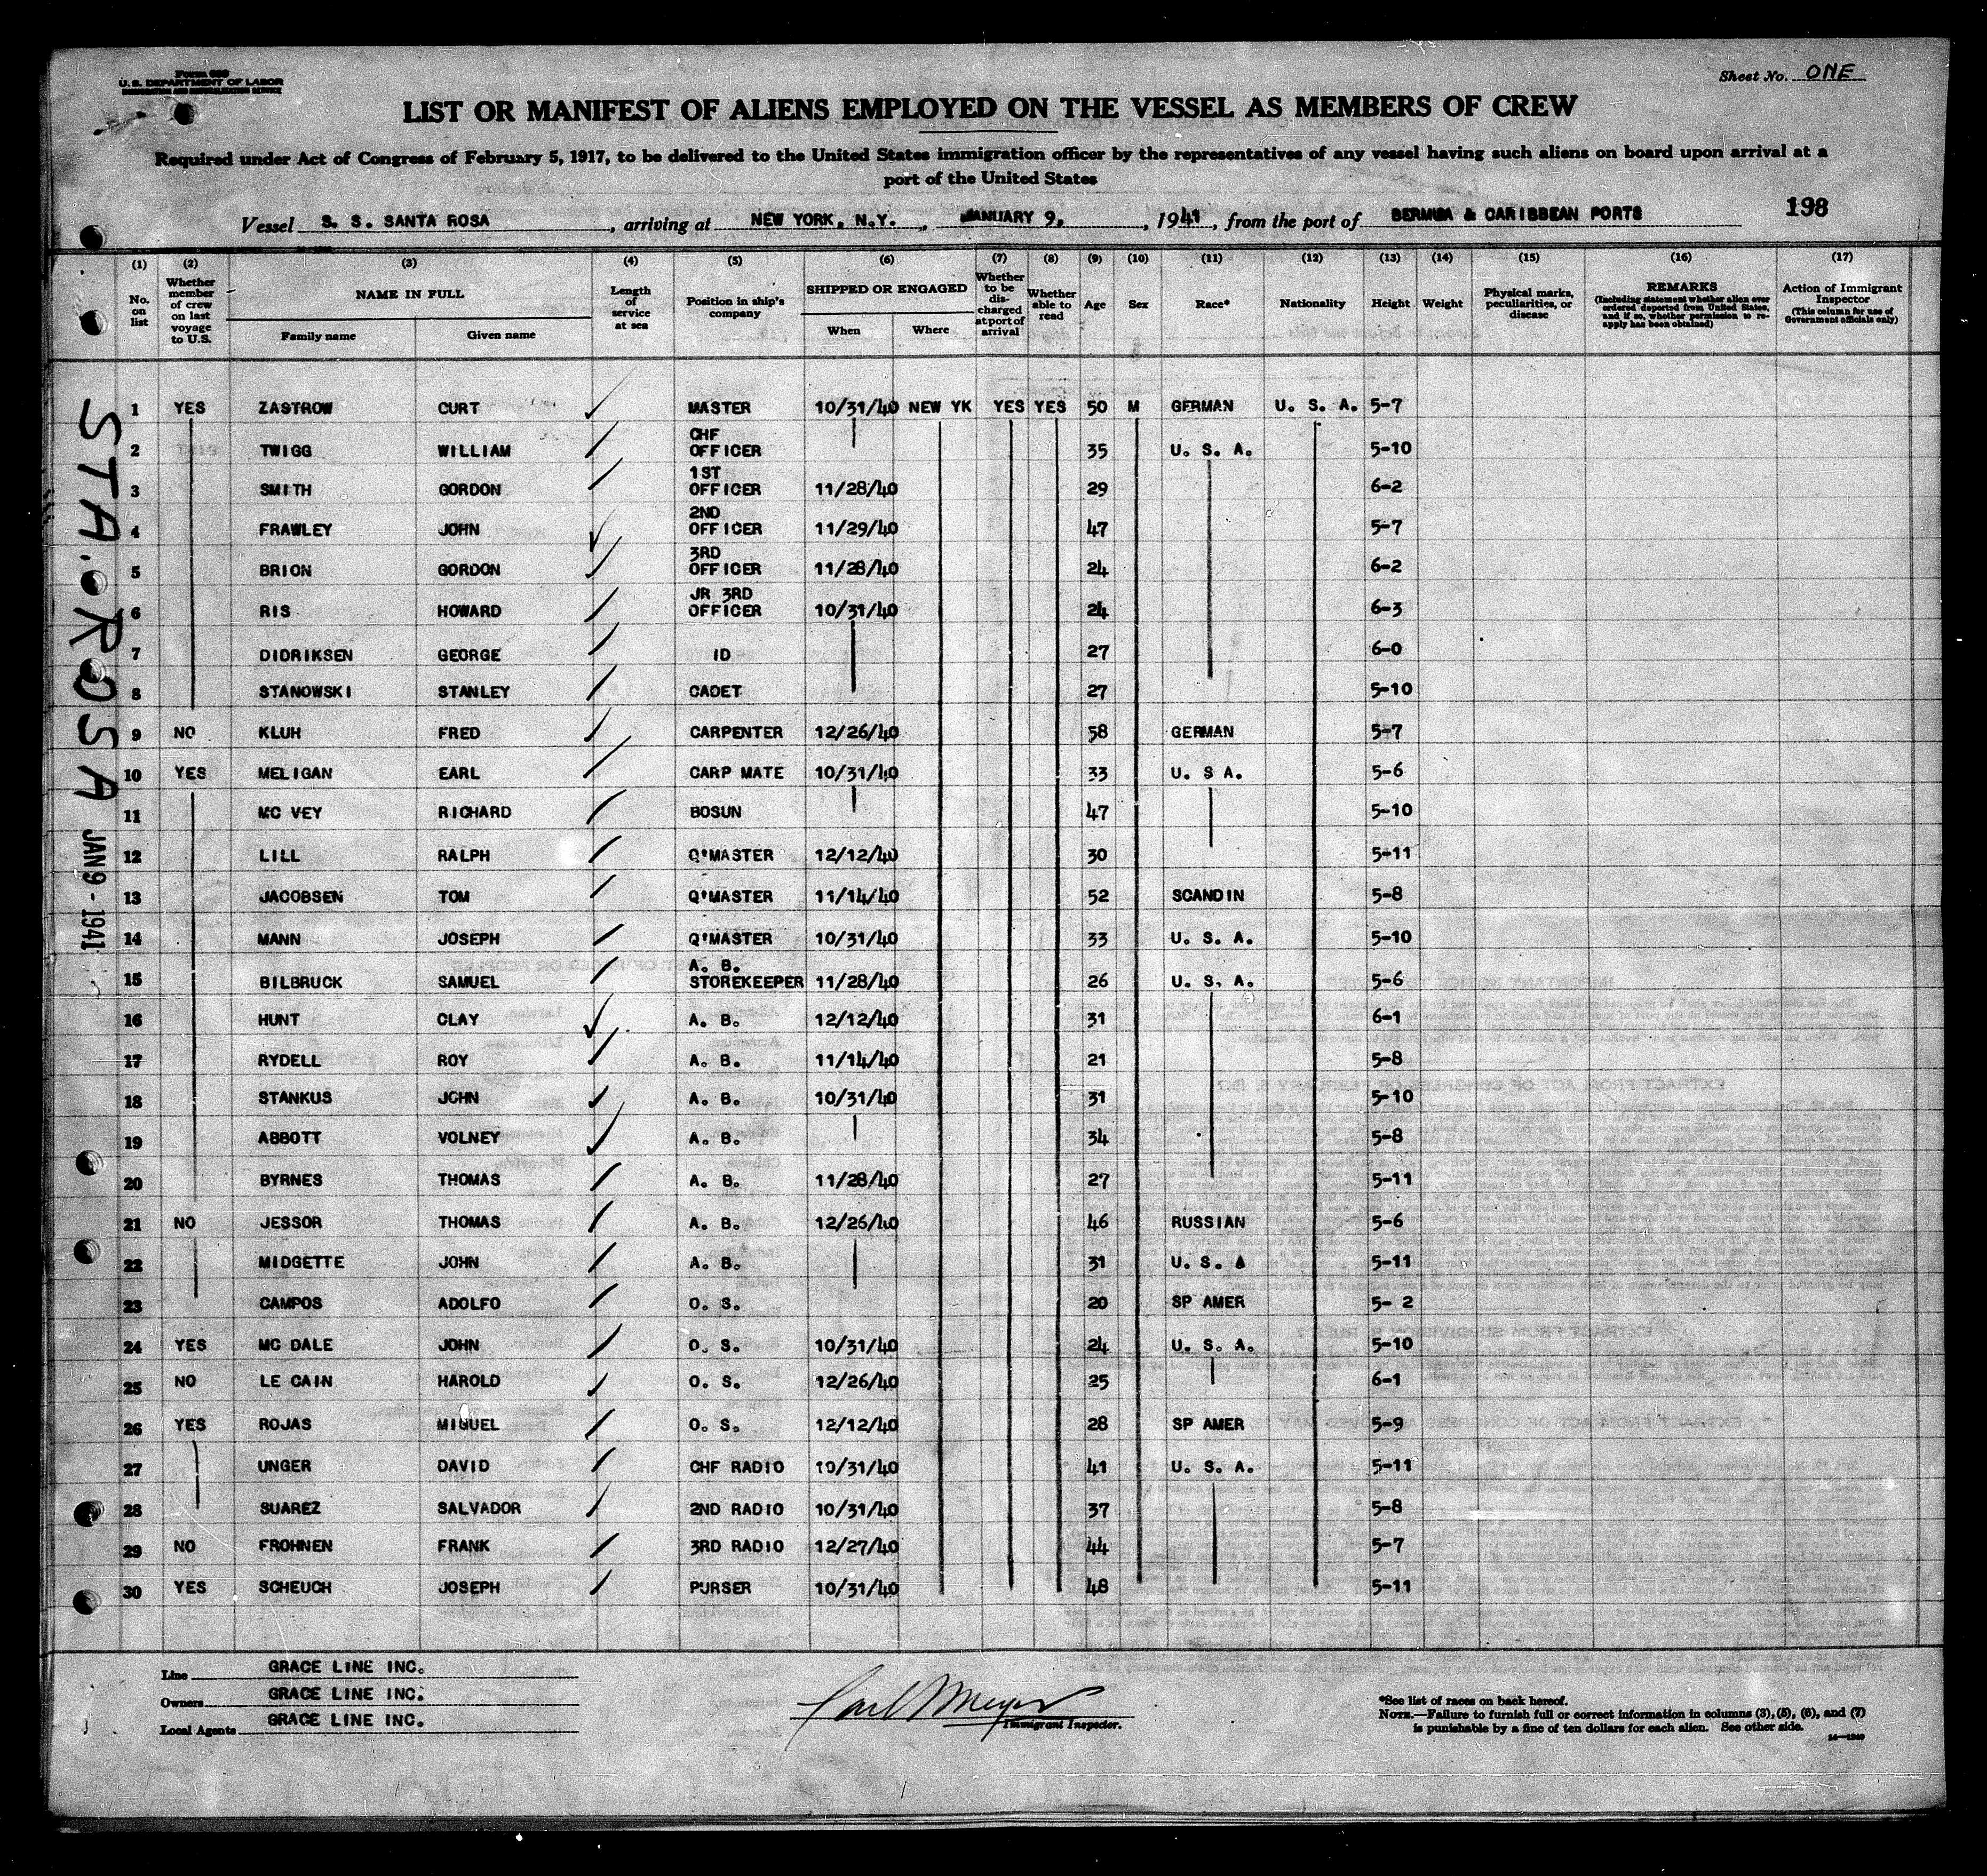 Form 680
U. S. DEPARTMENT OF LABOR
IMMIGRATION AND NATURALIZATION SERVICE
Sheet No. ONE
LIST OR MANIFEST OF ALIENS EMPLOYED ON THE VESSEL AS MEMBERS OF CREW
Required under Act of Congress of February 5, 1917, to be delivered to the United States immigration officer by the representatives of any vessel having such aliens on board upon arrival at a
port of the United States
198
Vessel S. S. SANTA ROSA, arriving at NEW YORK, N.Y., JANUARY 9, 1941, from the port of BERMUDA & CARIBBEAN PORTS
(1) (2) (3) (4) (5) (6) (7) (8) (9) (10) (11) (12) (13) (14) (15) (16) (17)
No. on list
Whether member of crew on last voyage to U.S.
NAME IN FULL
Family name Given name
Length of service at sea
Position in ship's company
SHIPPED OR ENGAGED
When Where
Whether to be discharged at port of arrival
Whether able to read
Age
Sex
Race*
Nationality
Height
Weight
Physical marks, peculiarities, or disease
REMARKS
(Including statement whether alien ever ordered deported from United States, and if so, whether permission to reapply has been obtained)
Action of Immigrant Inspector
(This column for use of Government officials only)
STA. ROSA JAN 9 - 1941
1 YES ZASTROW CURT MASTER 10/31/40 NEW YK YES YES 50 M GERMAN U. S. A. 5-7
2 TWIGG WILLIAM CHF OFFICER 35 U. S. A. 5-10
3 SMITH GORDON 1ST OFFICER 11/28/40 29 6-2
4 FRAWLEY JOHN 2ND OFFICER 11/29/40 47 5-7
5 BRION GORDON 3RD OFFICER 11/28/40 24 6-2
6 RIS HOWARD JR 3RD OFFICER 10/31/40 24 6-3
7 DIDRIKSEN GEORGE ID 27 6-0
8 STANOWSKI STANLEY CADET 27 5-10
9 NO KLUH FRED CARPENTER 12/26/40 58 GERMAN 5-7
10 YES MELIGAN EARL CARP MATE 10/31/40 33 U. S A. 5-6
11 MC VEY RICHARD BOSUN 47 5-10
12 LILL RALPH Q'MASTER 12/12/40 30 5-11
13 JACOBSEN TOM Q'MASTER 11/14/40 52 SCANDIN 5-8
14 MANN JOSEPH Q'MASTER 10/31/40 33 U. S. A. 5-10
15 BILBRUCK SAMUEL A. B. STOREKEEPER 11/28/40 26 U. S. A. 5-6
16 HUNT CLAY A. B. 12/12/40 31 6-1
17 RYDELL ROY A. B. 11/14/40 21 5-8
18 STANKUS JOHN A. B. 10/31/40 31 5-10
19 ABBOTT VOLNEY A. B. 34 5-8
20 BYRNES THOMAS A. B. 11/28/40 27 5-11
21 NO JESSOR THOMAS A. B. 12/26/40 46 RUSSIAN 5-6
22 MIDGETTE JOHN A. B. 31 U. S. A 5-11
23 CAMPOS ADOLFO O. S. 20 SP AMER 5- 2
24 YES MC DALE JOHN O. S. 10/31/40 24 U. S. A. 5-10
25 NO LE CAIN HAROLD O. S. 12/26/40 25 6-1
26 YES ROJAS MIGUEL O. S. 12/12/40 28 SP AMER 5-9
27 UNGER DAVID CHF RADIO 10/31/40 41 U. S. A. 5-11
28 SUAREZ SALVADOR 2ND RADIO 10/31/40 37 5-8
29 NO FROHNEN FRANK 3RD RADIO 12/27/40 44 5-7
30 YES SCHEUCH JOSEPH PURSER 10/31/40 48 5-11
Line GRACE LINE INC.
Owners GRACE LINE INC.
Local Agents GRACE LINE INC.
Carl Meyer
Immigrant Inspector.
*See list of races on back hereof.
NOTE.—Failure to furnish full or correct information in columns (3), (5), (6), and (7)
is punishable by a fine of ten dollars for each alien. See other side.